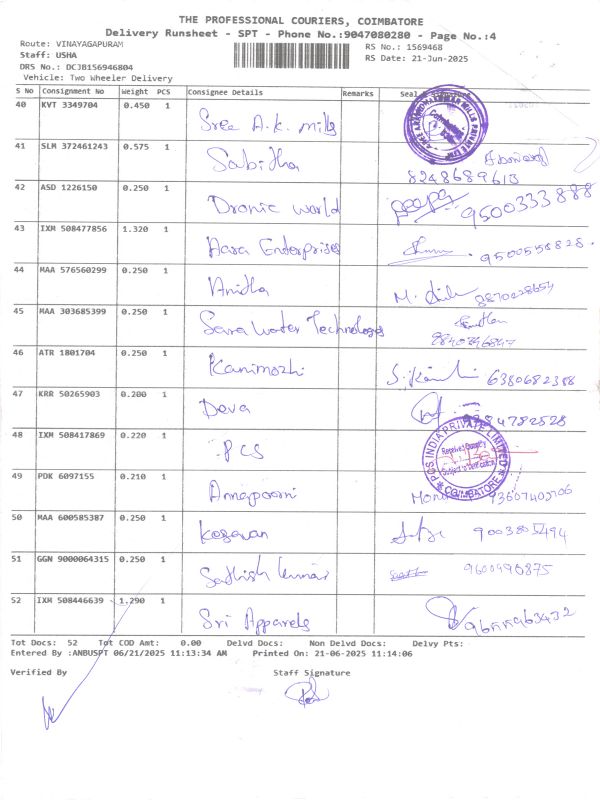 THE PROFESSIONAL COURIERS, COIMBATORE
Delivery Runsheet - SPT - Phone No.:9047080280 - Page No.:4
Route: VINAYAGAPURAM RS No.: 1569468
Staff: USHA RS Date: 21-Jun-2025
DRS No.: DCJB156946804
Vehicle: Two Wheeler Delivery
S No Consignment No Weight PCS Consignee Details Remarks Seal
40 KVT 3349704 0.450 1 Sree A.K. mills
41 SLM 372461243 0.575 1 Sabitha
8248689613
42 ASD 1226150 0.250 1 Dronic world 9500333888
43 IXM 508477856 1.320 1 Aara Enterprises 9500558828.
44 MAA 576560299 0.250 1 Anitha
45 MAA 303685399 0.250 1 Sara Water Technologies
46 ATR 1801704 0.250 1 Kanimozhi 6380682388
47 KRR 50265903 0.200 1 Deva
48 IXM 508417869 0.220 1 PCS
PGS INDIA PRIVATE LIMITED
COIMBATORE
49 PDK 6097155 0.210 1 Annapoorni
50 MAA 600585387 0.250 1 Kesavan
51 GGN 9000064315 0.250 1 Sathish Kumar 9600990875
52 IXM 508446639 1.290 1 Sri Apparels
Tot Docs: 52 Tot COD Amt: 0.00 Delvd Docs: Non Delvd Docs: Delvy Pts:
Entered By :ANBUSPT 06/21/2025 11:13:34 AM Printed On: 21-06-2025 11:14:06
Verified By Staff Signature